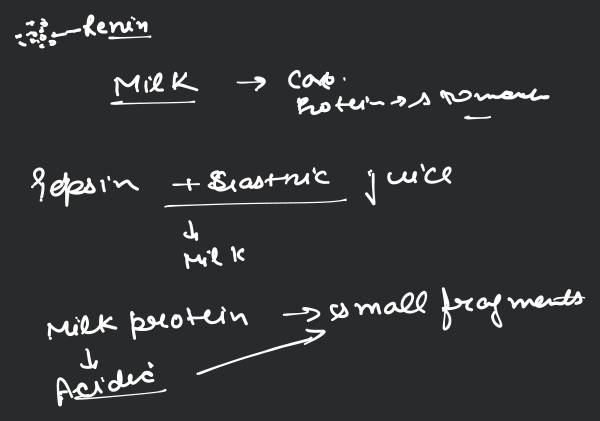 Renin
Milk → Cas.
Protein →
Pepsin + Gastric juice
↓
Milk
Milk protein → small fragments
↓
Acidic